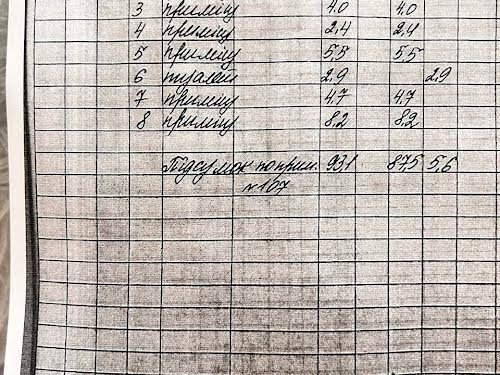 3 приміщ 4.0 4,0
4 приміщ 2,4 2,4
5 приміщ 5,5 5,5
6 туалет 2,9 2,9
7 приміщ 4,7 4,7
8 приміщ 8,2 8,2
Підсумок по прим. 93,1 87,5 5,6
№167